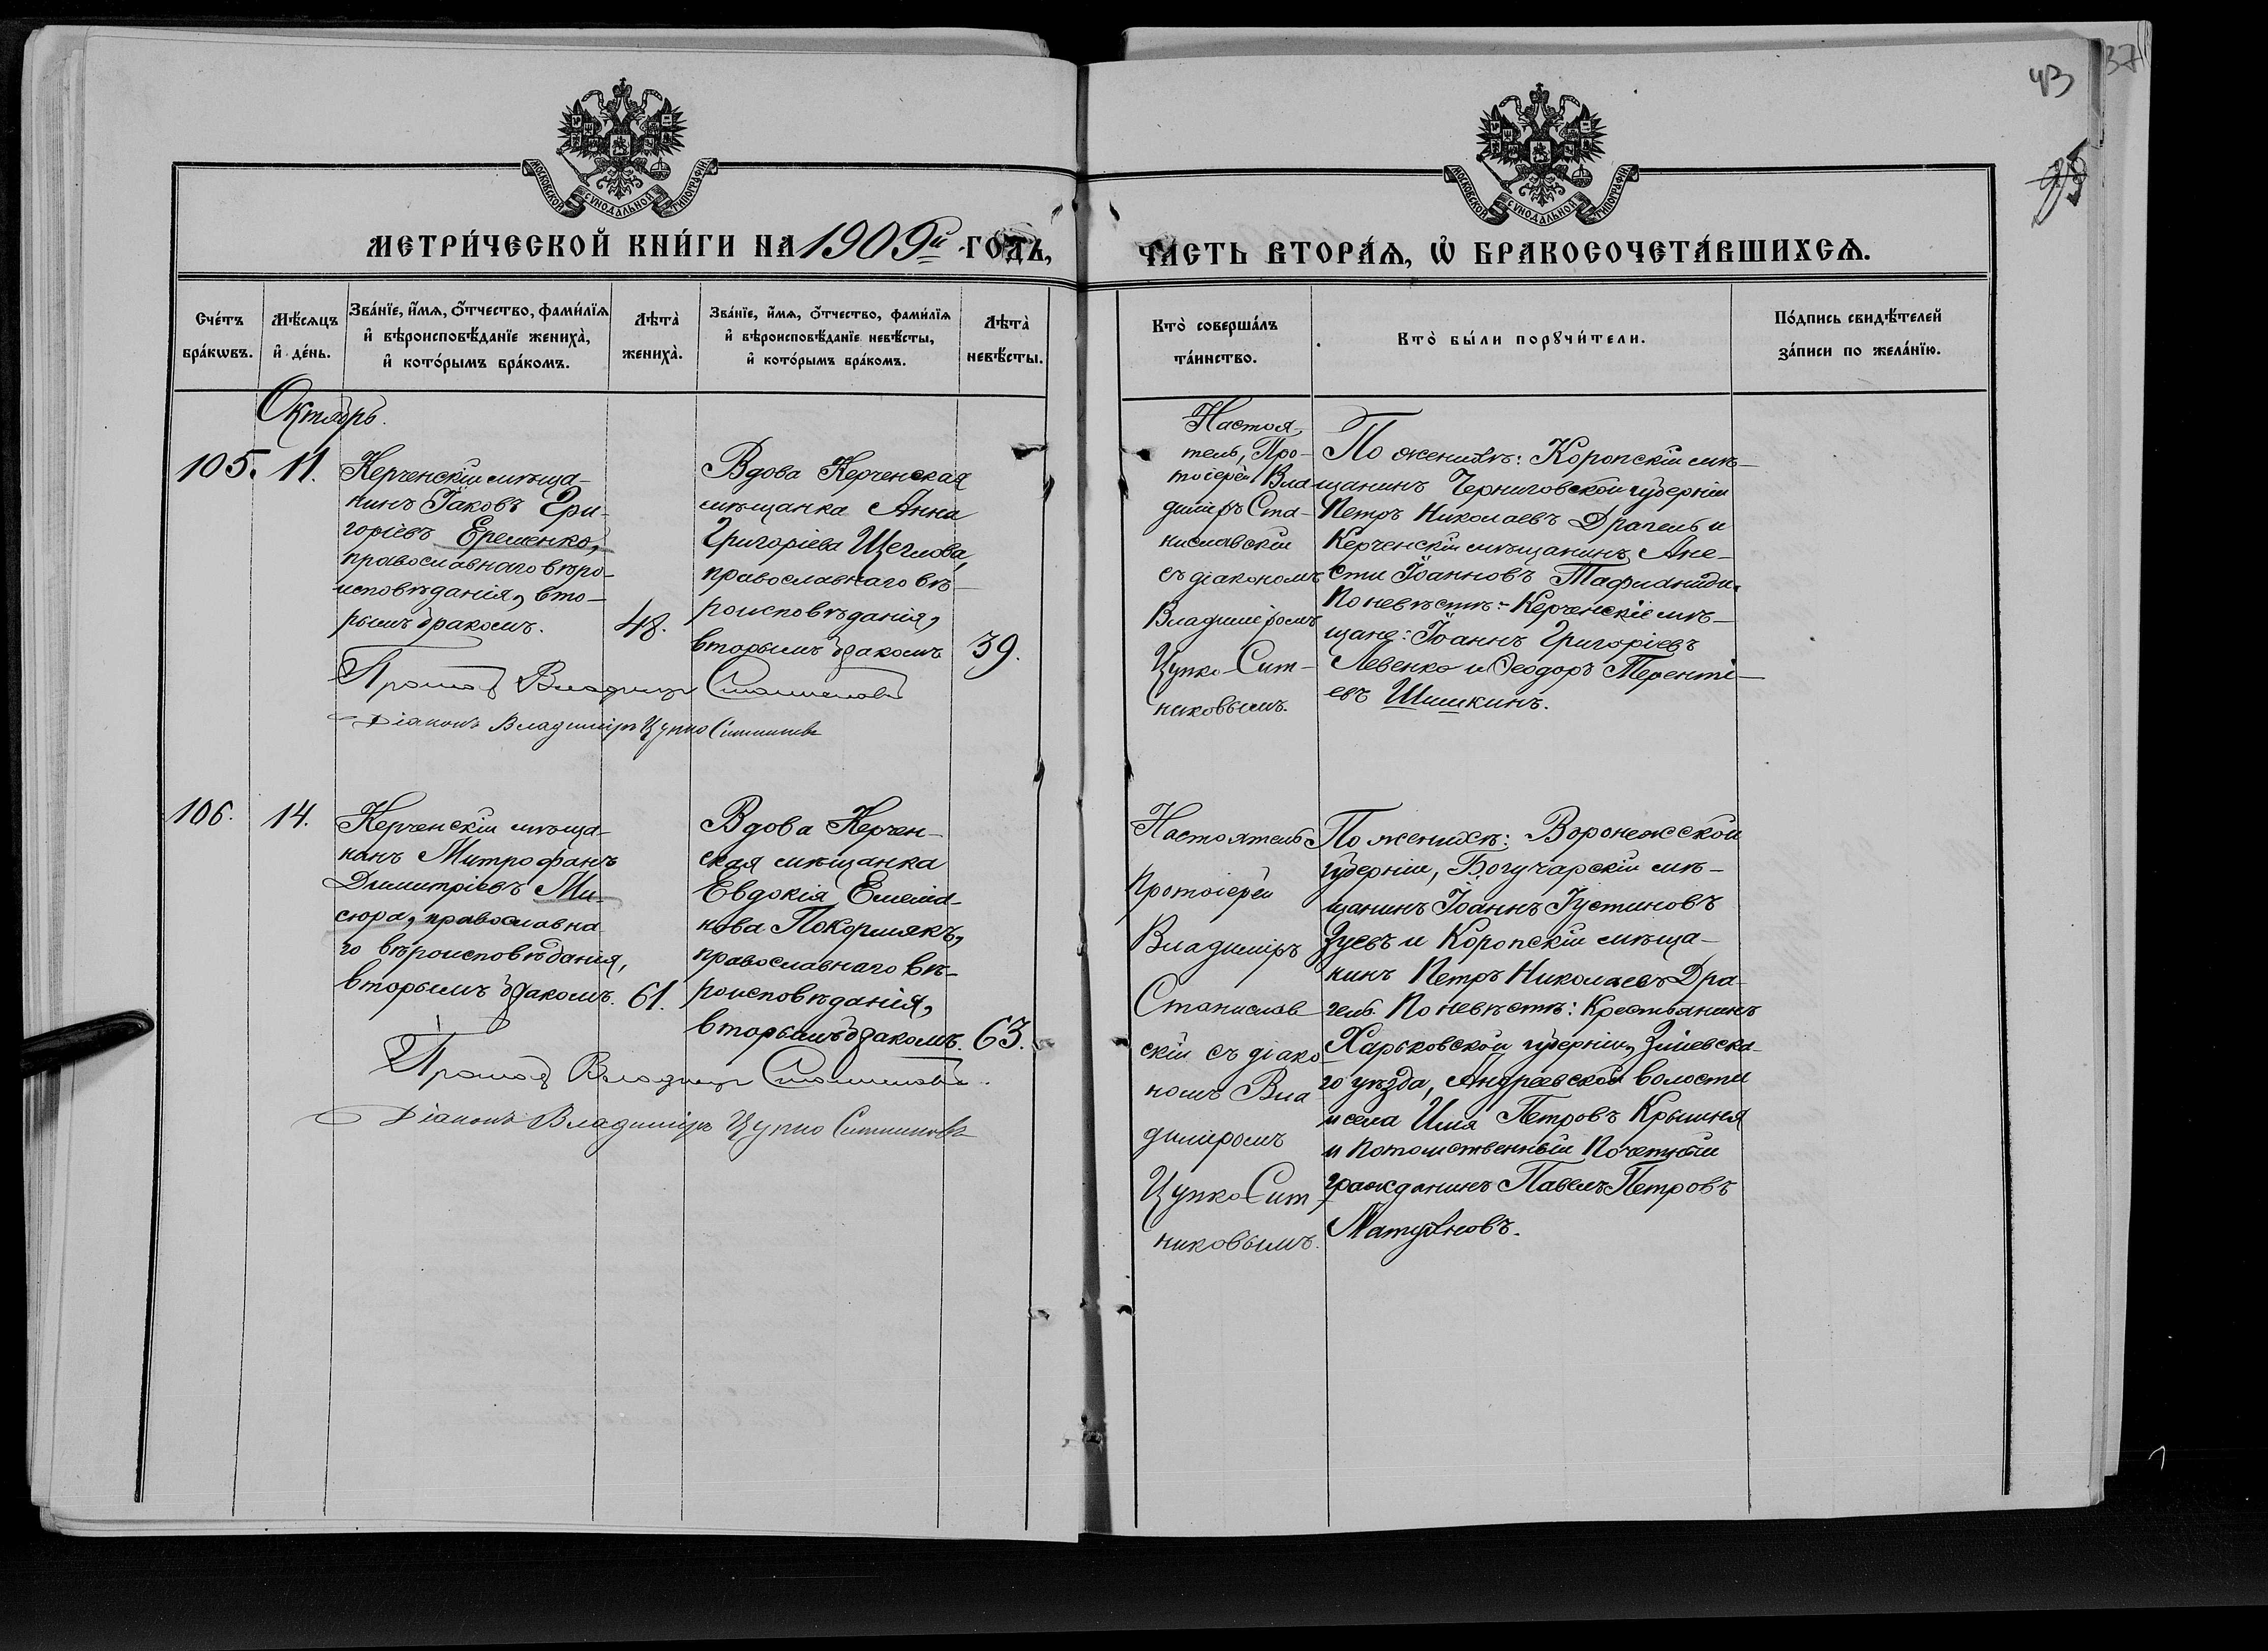 43
37
МОСКОВСКОЙ СѴНОДАЛЬНОЙ ТИПОГРАФІИ
МОСКОВСКОЙ СѴНОДАЛЬНОЙ ТИПОГРАФІИ
МЕТРИ́ЧЕСКОЙ КНИ́ГИ НА 1909й ГОДЪ,
ЧАСТЬ ВТОРА́Ѧ, Ѽ БРАКОСОЧЕТА́ВШИХСѦ.
Сче́тъ
бра́кѡвъ.
Мѣ́сѧцъ
и҆ де́нь.
Зва́нїе, и҆́мѧ, ѻ҆́тчество, фами́лїѧ
и҆ вѣроисповѣ́данїе жениха̀,
и҆ кото́рымъ бра́комъ.
Лѣта̀
жениха̀.
Зва́нїе, и҆́мѧ, ѻ҆́тчество, фами́лїѧ
и҆ вѣроисповѣ́данїе невѣ́сты,
и҆ кото́рымъ бра́комъ.
Лѣта̀
невѣ́сты.
Кто̀ соверша́лъ
та́инство.
Кто̀ бы́ли порꙋчи́тели.
По́дпись свидѣ́телей
за́писи по жела́нїю.
Октябрь.
105.
11.
Керченскій мѣща-
нинъ Іаковъ Гри-
горіевъ Еременко,
православнаго вѣро-
исповѣданія, вто-
рымъ бракомъ.
48.
Вдова Керченская
мѣщанка Анна
Григоріева Щеглова,
православнаго вѣ-
роисповѣданія,
вторымъ бракомъ
39.
Владиміръ
Діаконъ Владиміръ Цупко Ситниковъ
Настоя-
тель, Про-
тоіерей Вла-
диміръ Ста-
ниславскій
съ діакономъ
Владиміромъ
Цупко-Сит-
никовымъ.
По женихѣ: Коропскій мѣ-
щанинъ Черниговской губерніи
Петръ Николаевъ Драгель и
Керченскій мѣщанинъ Ане-
сти Іоанновъ Тафианиди.
По невѣстѣ:- Керченскіе мѣ-
щане: Іоаннъ Григоріевъ
Левенко и Ѳеодоръ Теренті-
евъ Шишкинъ.
106.
14.
Керченскій мѣща-
нинъ Митрофанъ
Димитріевъ Ми-
сюра, православна-
го вѣроисповѣданія,
вторымъ бракомъ.
61.
Вдова Керчен-
ская мѣщанка
Евдокія Емелiа-
нова Покормякъ,
православнаго вѣ-
роисповѣданія,
вторымъ бракомъ.
63.
Владиміръ
Діаконъ Владиміръ Цупко Ситниковъ
Настоятель
Протоіерей
Владиміръ
Станислав
скій съ діако
номъ Вла
диміромъ
Цупко Сит-
никовымъ.
По женихѣ: Воронежской
губерніи, Богучарскій мѣ-
щанинъ Іоаннъ Іустиновъ
Зуевъ и Коропскій мѣща-
нинъ Петръ Николаевъ Дра-
гель. По невѣстѣ: Крестьянинъ
Харьковской губерніи, Зміевска-
го уѣзда, Андреевской волости
и села Илія Петровъ Крышня
и Потомственный Почетный
гражданинъ Павелъ Петровъ